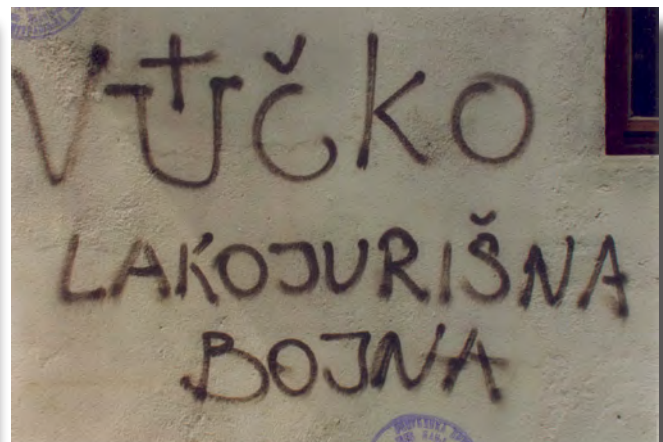 VUČKO
LAKOJURIŠNA
BOJNA